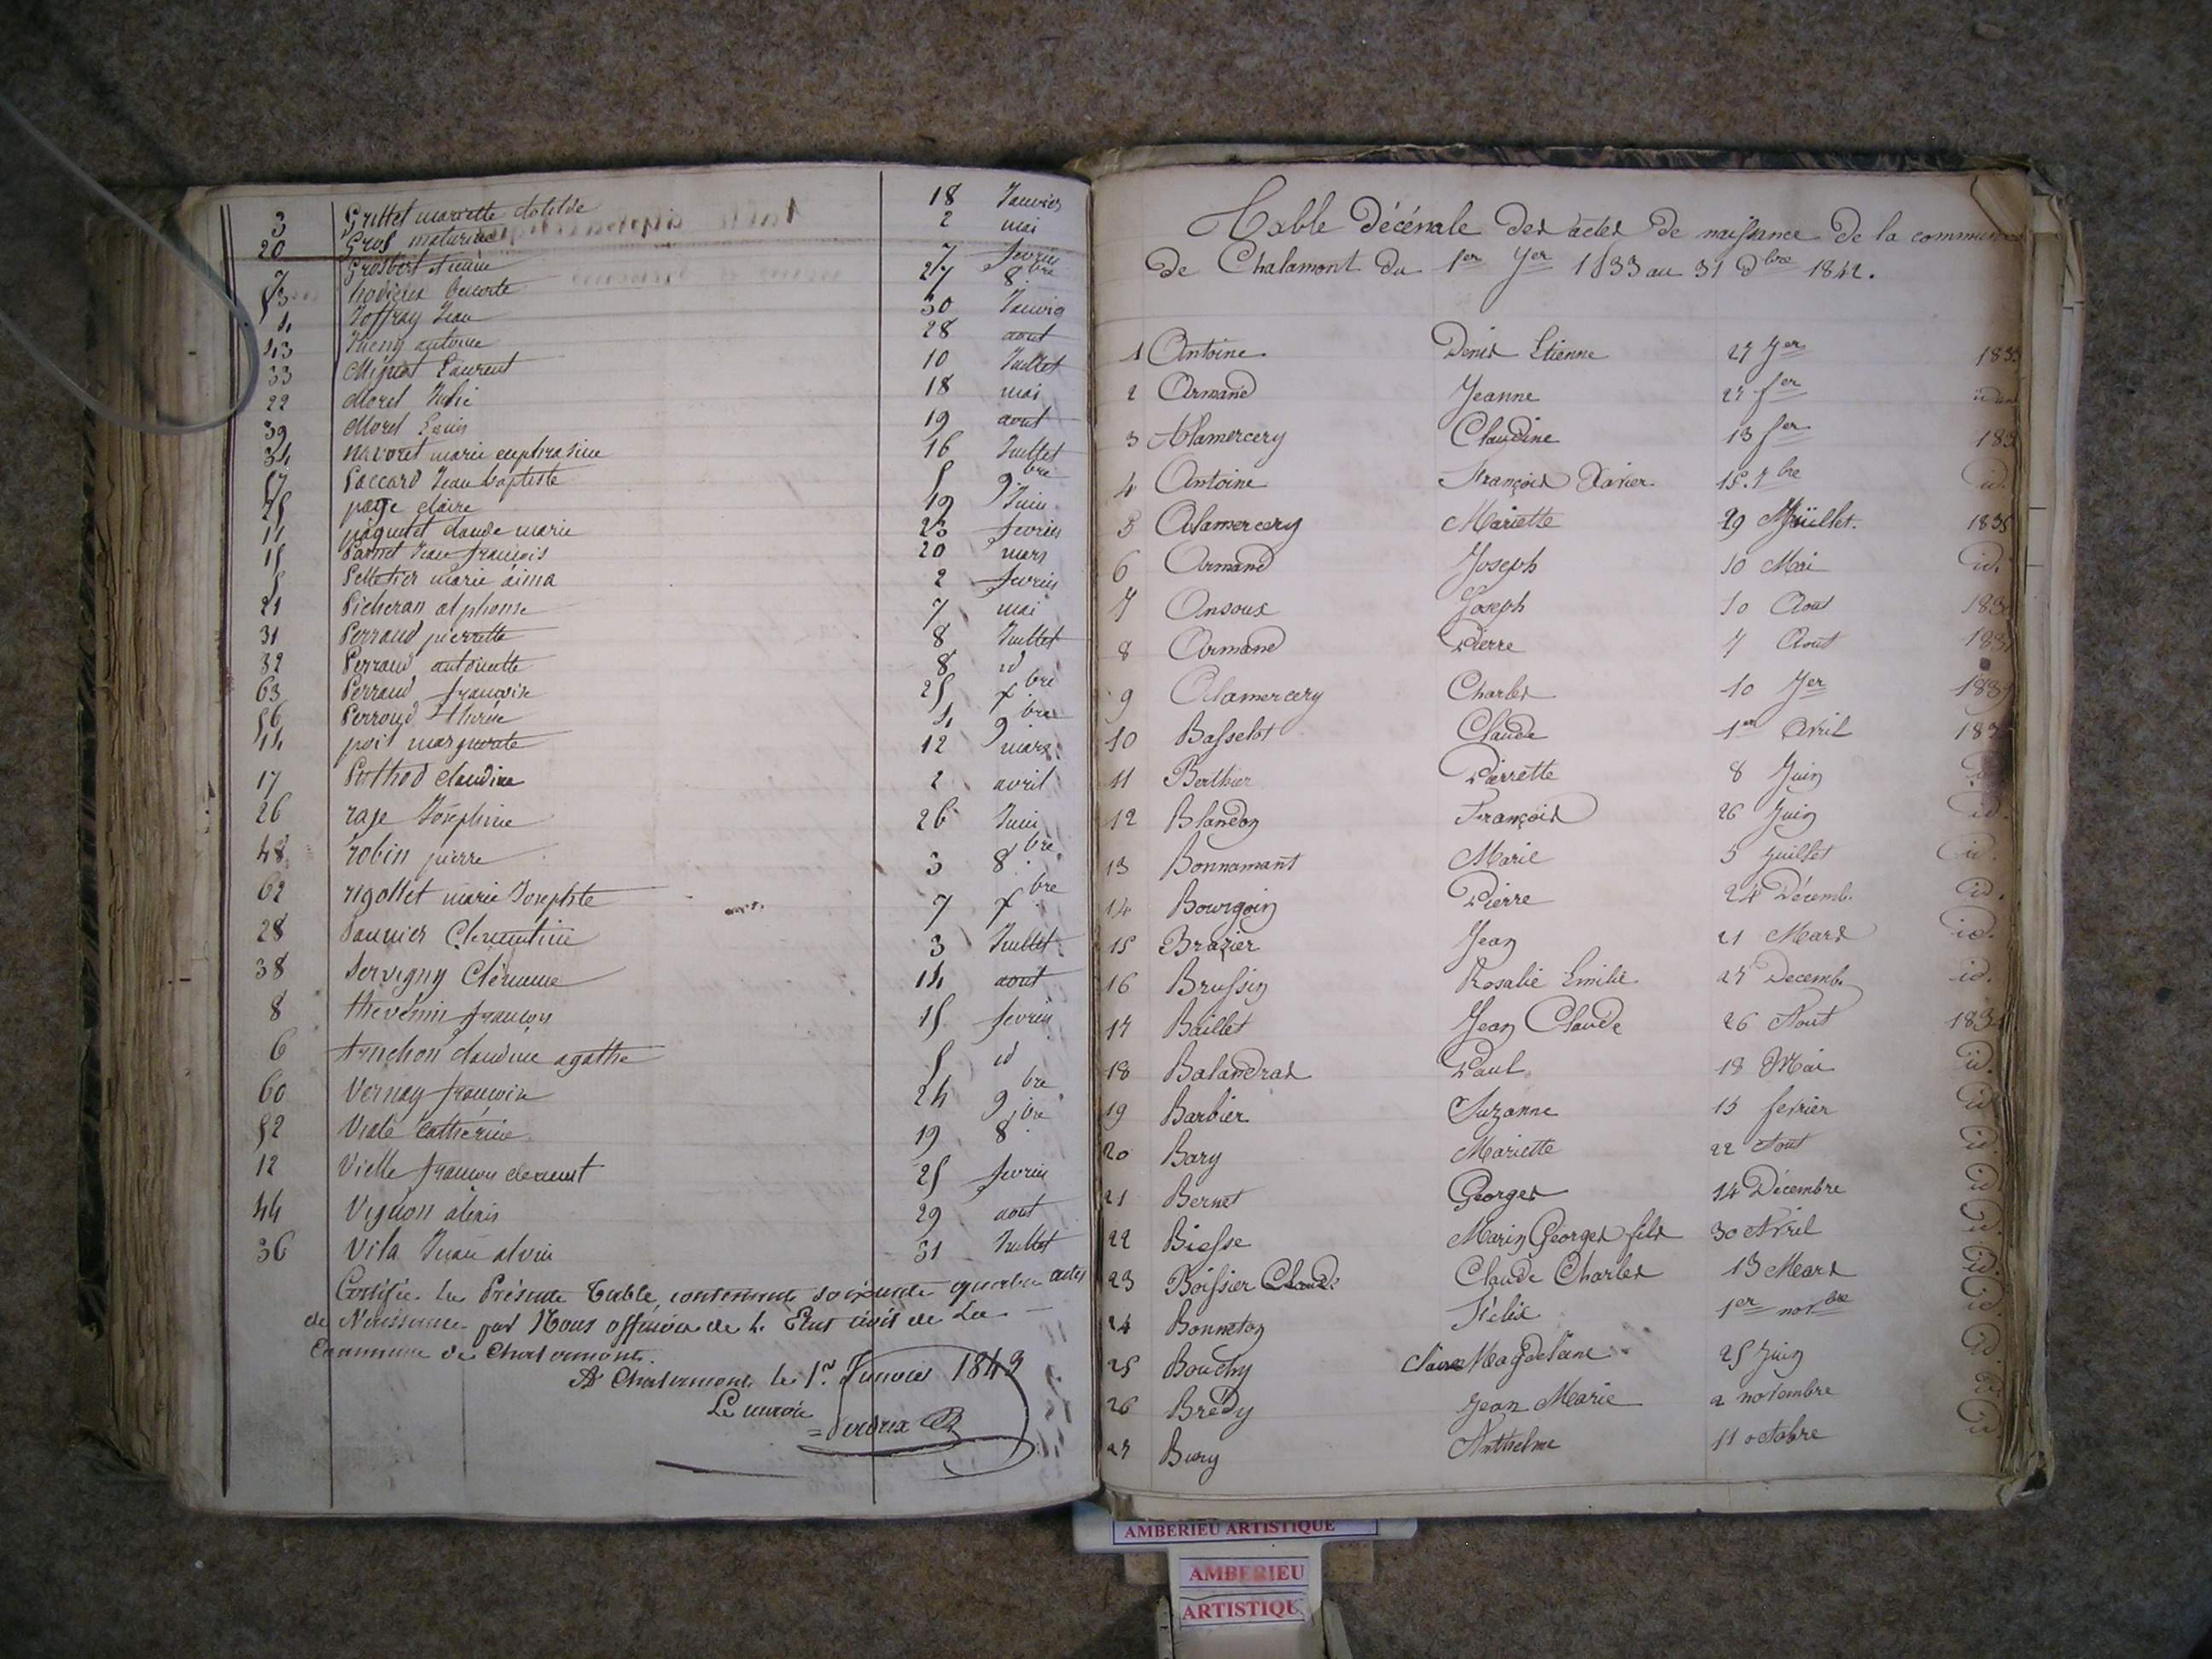 3 Grillet mariette clotilde 18 Janvier
20 Gros 2 mai
7 Grosbert 7 fevrier
53 27 8bre
4 Joffray Jean 30 Janvier
43 antoine 28 aout
33 Mignot Laurent 10 Juillet
22 Morel Julie 18 mai
39 Morel Louis 19 aout
34 navoret marie euphrasine 16 Juillet
57 Paccard Jean baptiste 5 9bre
25 page claire 19 Juin
11 paquetet claude marie 23 fevrier
15 Jean francois 20 mars
5 Pelletier marie aima 2 fevrier
21 Picheran alphonse 7 mai
31 Perraud pierrette 8 Juillet
32 Perraud antoinette 8 id
63 Perraud francois 25 xbre
56 Perroud 4 9bre
14 marguerite 12 mars
17 Claudine 2 avril
26 raje Joséphine 26 Juin
48 robin pierre 3 8bre
62 rigollet marie Josephte 7 xbre
28 Saunier Clementine 3 Juillet
38 Servigny 14 aout
8 thevenin francois 15 fevrier
6 truchon claudine agathe 5 id
60 Vernay francois 24 9bre
52 Viale Catherine 19 8bre
12 Vielle francois clement 25 fevrier
44 Vignon alexis 29 aout
36 Vila 31 Juillet
Certifié la Présente Table, contenant soixante quatre actes
de Naissance par Nous officier de l' Etat civil de La
Commune de Chalamont.
A Chalamont le 1er Janvier 1843
Le maire
Table décénale des actes de naissance de la commune
de Chalamont du 1er Jer 1833 au 31 Dbre 1842.
1 Antoine Denis Etienne 27 Jer 1833
2 Armand Jeanne 27 fer idem
3 Alamercery Claudine 13 fer
4 Antoine François Xavier 15. 7bre id.
5 Alamercery Mariette 29 Juillet. 1835
6 Armand Joseph 10 Mai id.
7 Ansoux Joseph 10 Aout
8 Armand Pierre 7 Aout
9 Alamercery Charles 10 Jer 1839
10 Basselot Claude 1er Avril
11 Berthier Pierrette 8 Juin
12 Blandon François 26 Juin id.
13 Bonnamant Marie 5 Juillet id
14 Bourgoin Pierre 24 Décemb. id.
15 Brazier Jean 21 Mars id.
16 Brussin Rosalie Emilie 27 Decemb. id.
17 Baillet Jean Claude 26 Aout 1834
18 Balandras Paul 18 Mai id.
19 Barbier Suzanne 15 fevrier id
20 Bary Mariette 22 Aout id.
21 Bernet Georges 14 Décembre id
22 Biesse Marin Georges fils 30 Avril id.
23 Boissier Claude Claude Charles 13 Mars id.
24 Bonneton Félix 1er novbre id.
25 Bouchy Claire Magdelaine 25 Juin id.
26 Brédy Jean Marie 2 novembre id.
27 Bury Anthelme 11 octobre id
AMBERIEU ARTISTIQUE
AMBERIEU
ARTISTIQUE